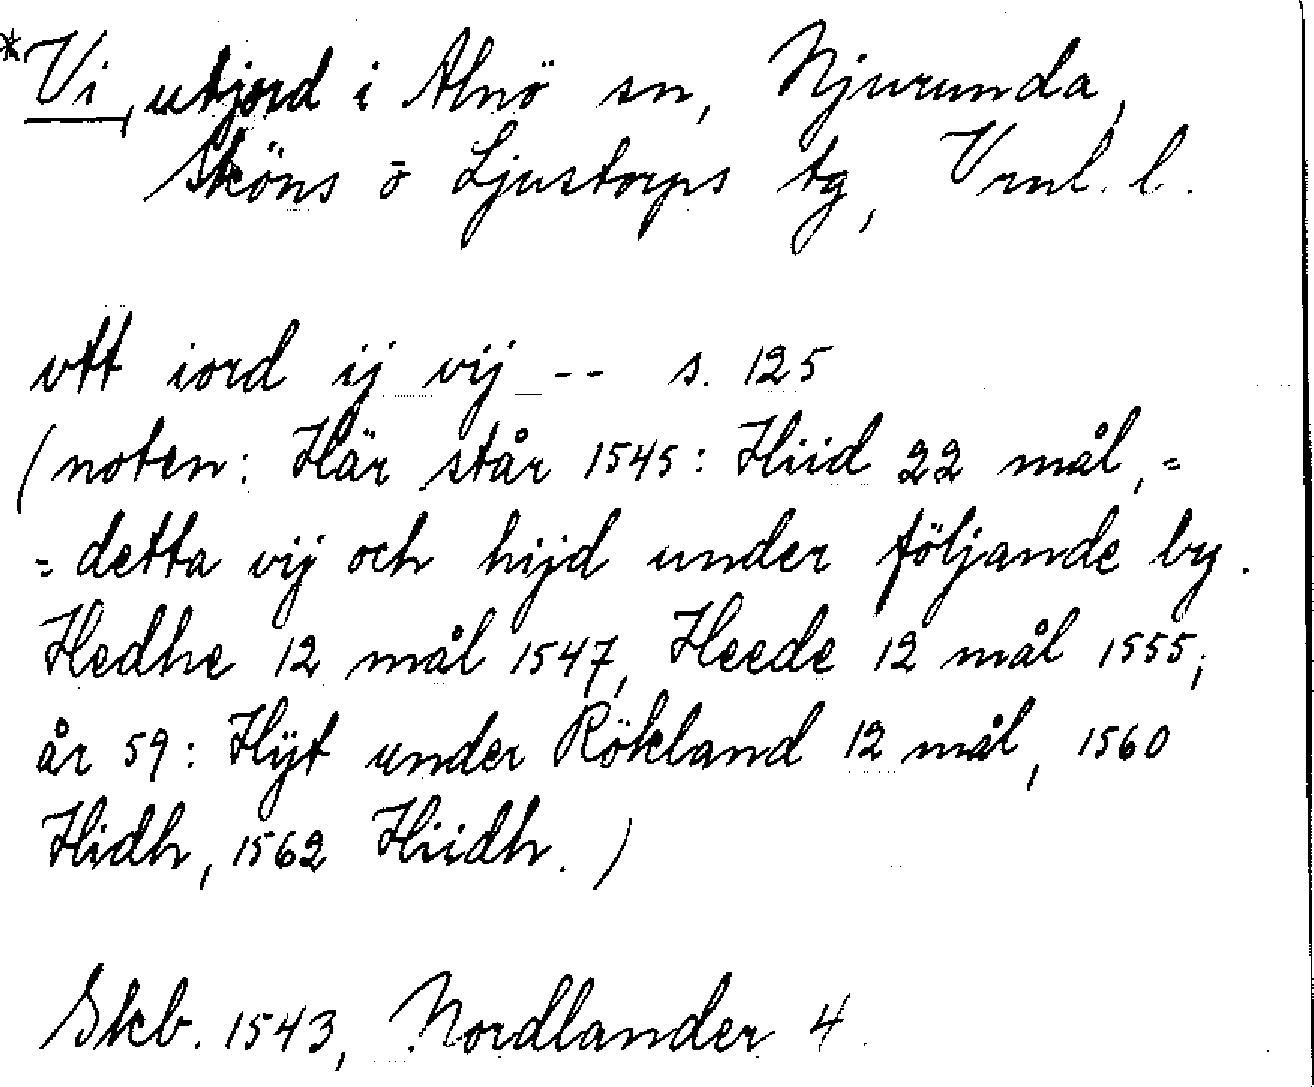 *Vi, utjord i Alnö sn, Njurunda,
Sköns o Ljustorps tg, Vml. l.
vtt iord ij vij -- s. 125
(noten: Här står 1545: Hiid 22 mål,=
=detta vij och hijd under följande by.
Hedhe 12 mål 1547, Heede 12 mål 1555;
år 59: Hÿt under Rökland 12 mål, 1560
Hidh, 1562 Hiidh.)
Skb. 1543, Nordlander 4